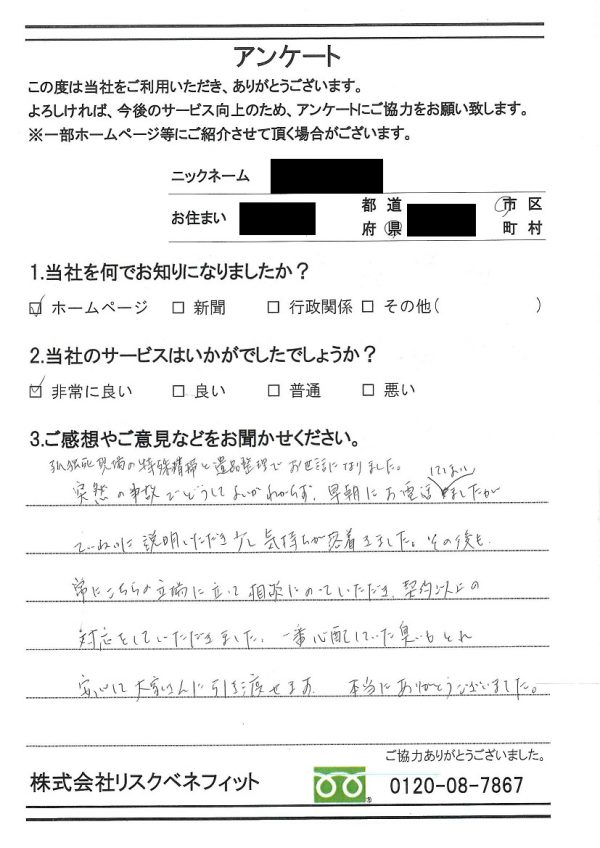 アンケート
この度は当社をご利用いただき、ありがとうございます。
よろしければ、今後のサービス向上のため、アンケートにご協力をお願い致します。
※一部ホームページ等にご紹介させて頂く場合がございます。
ニックネーム
お住まい 都道府県 市区町村
1.当社を何でお知りになりましたか？
☑ ホームページ □ 新聞 □ 行政関係 □ その他( )
2.当社のサービスはいかがでしたでしょうか？
☑ 非常に良い □ 良い □ 普通 □ 悪い
3.ご感想やご意見などをお聞かせください。
孤独死現場の特殊清掃と遺品整理でお世話になりました。
突然の事故でどうしてよいかわからず、早朝にお電話しましたが
ていねいに説明いただき少し気持ちが落着きました。その後も
常にこちらの立場に立って相談にのっていただき、契約以上の
対応をしていただきました。一番心配していた臭いもとれ
安心して大家さんに引き渡せます。 本当にありがとうございました。
ご協力ありがとうございました。
株式会社リスクベネフィット 0120-08-7867